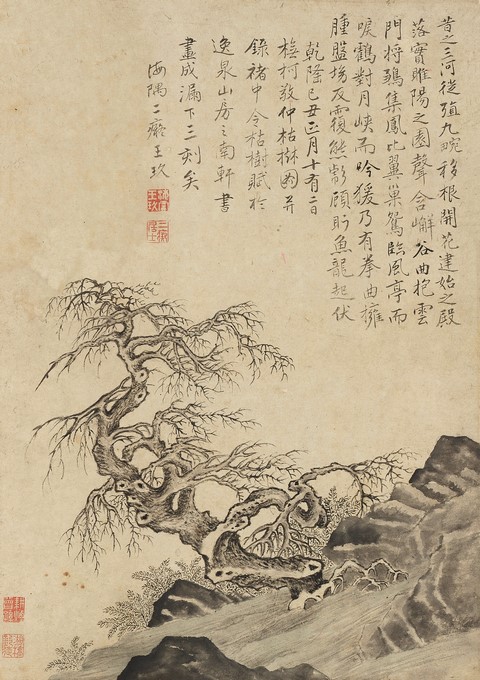 昔之三河從殖九畹移根開花建始之殿
落實睢陽之園聲含嶰谷曲抱雲
門將鶵集鳳比翼巢鴛臨風亭而
唳鶴對月峽而吟猨乃有拳曲擁
腫盤坳反覆熊彪顧盻魚龍起伏
乾隆己丑正月十有二日
橅柯敬仲枯樹圖并
錄褚中令枯樹賦於
逸泉山房之南軒書
畫成漏下三刻矣
海隅二癡王玖